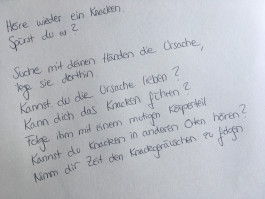 Höre wieder ein Knacken.
Spürst du es?
Suche mit deinen Händen die Ursache,
lege sie dorthin
Kannst du die Ursache lieben?
Kann dich das Knacken führen?
Folge ihm mit einem mutigen Körperteil
Kannst du Knacken in anderen Orten hören?
Nimm dir Zeit den Knackgeräuschen zu folgen